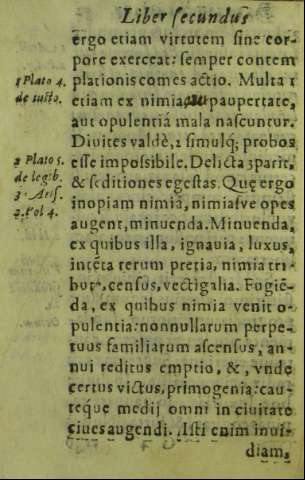 Liber secundus
ergo etiam virtutem sine cor-
pore exerceat: semper contem
1 Plato 4.
de iusto.
plationis comes actio. Multa 1
etiam ex nimia paupertate,
aut opulentiâ mala nascuntur.
Diuites valdè, 2 simulq; probos
2 Plato 5.
de legib.
3. Aris.
2. Pol 4.
esse impossibile. Delicta 3 parit,
& seditiones egestas. Quę ergo
inopiam nimiã, nimiasve opes
augent, minuenda. Minuenda,
ex quibus illa, ignauia, luxus,
intẽta rerum pretia, nimia tri-
buta, census, vectigalia. Fugiẽ-
da, ex quibus nimia venit o-
pulentia: nonnullarum perpe-
tuus familiarum ascensus, an-
nui reditus emptio, &, vnde
certus victus, primogenia: cau-
teque medij omni in ciuitate
ciues augendi. Isti enim inui-
diam,